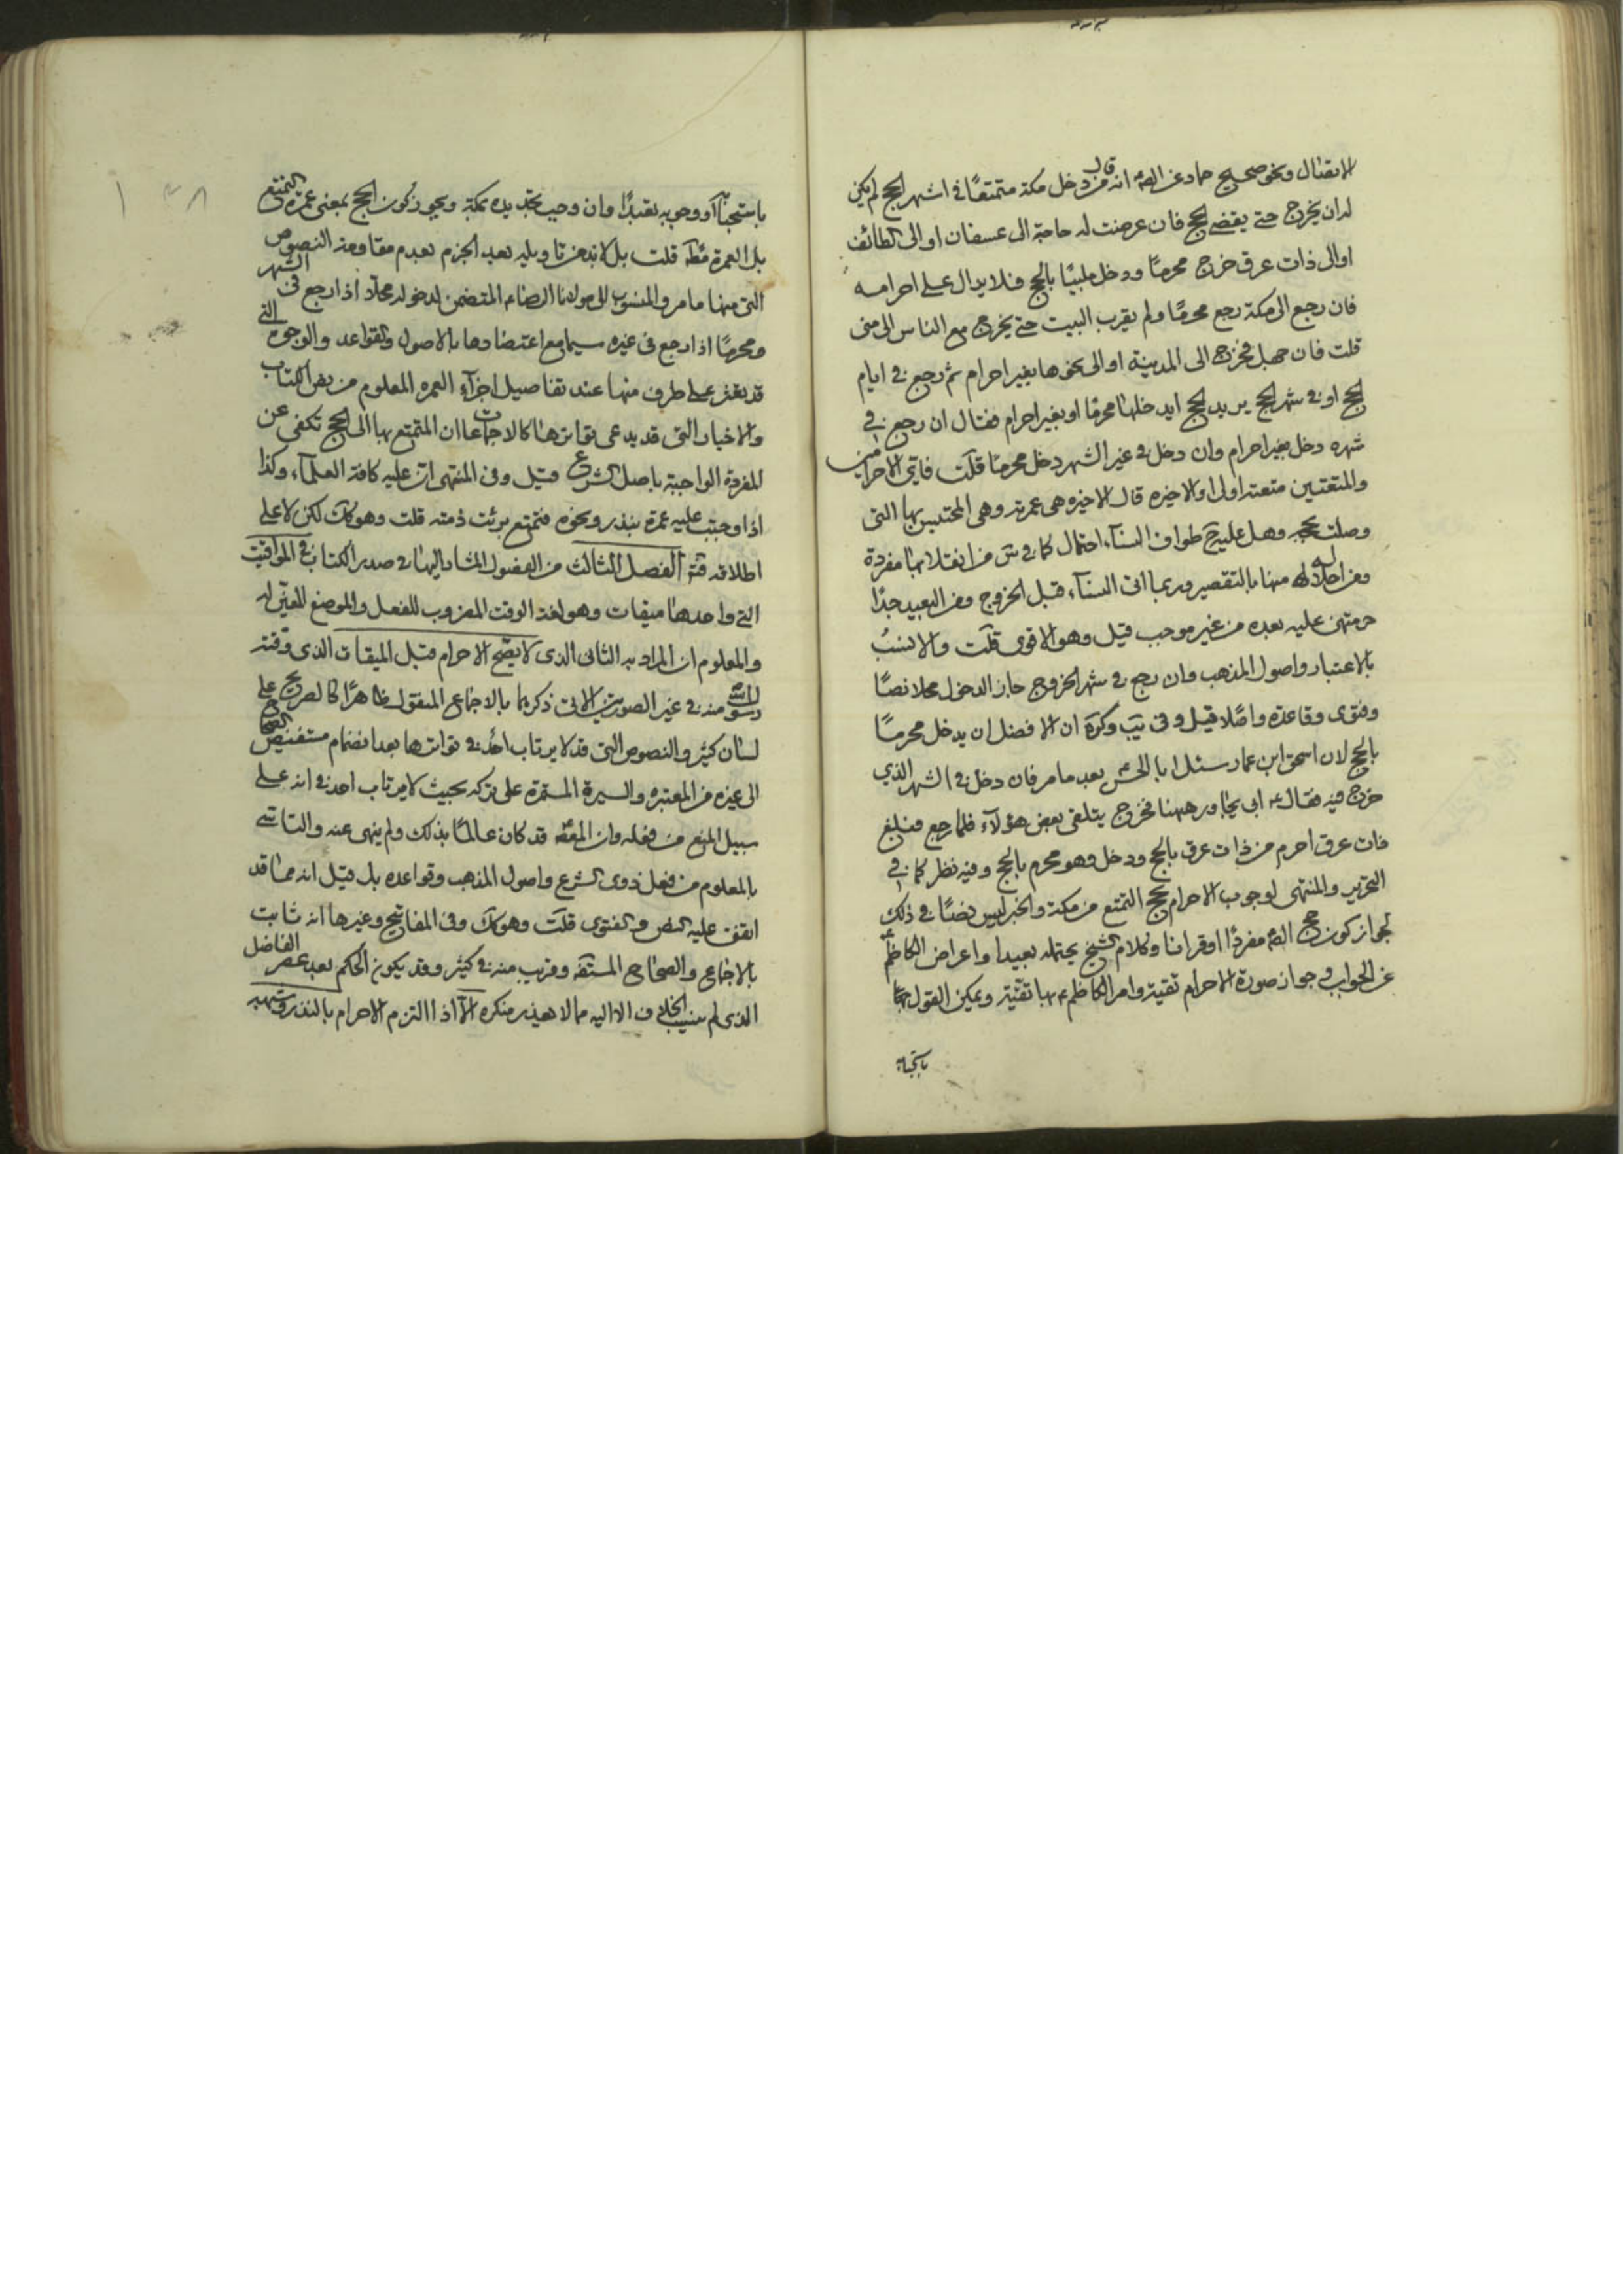 الانتقال ونحو صحيح حماد عن الصم انه قال من دخل مكة متمتعًا في اشهر الحج لم يكن
له ان يخرج حتى يقضي الحج فان عرضت له حاجة الى عسفان او الى الطائف
او الى ذات عرق خرج محرمًا ودخل ملبيًا بالحج فلا يزال على احرامه
فان رجع الى مكة رجع محرمًا ولم يقرب البيت حتى يخرج مع الناس الى منى
قلت فان جهل فخرج الى المدينة او الى نحوها بغير احرام ثم رجع في ايام
الحج او في شهر الحج يريد الحج ايدخلها محرمًا او بغير احرام فقال ان رجع في
شهره دخل بغير احرام وان دخل في غير الشهر دخل محرمًا قلت فاي الاحرامين
والمتعتين متعته اولى او الاخيره قال الاخيره هي عمرته وهي المحتبس بها التي
وصلت بحجه وهل عليه ح طواف النسآء احتمال كما في س من انقلابها مفردة
ومن احلاله منها بالتقصير وربما اتى النسآء قبل الخروج ومن البعيد جدًا
حرمتهن عليه بعده من غير موجب قيل وهو الاقوى قلت والانسب
بالاعتبار واصول المذهب وان رجع في شهر الخروج جاز الدخول محلا نصًا
وفتوى وقاعدة واصلا قيل وفي يب وكره ان الافضل ان يدخل محرمًا
بالحج لان اسحق ابن عمار سئل ابا الحسن بعد ما مر فان دخل في الشهر الذي
خرج فيه فقال ع ابي مجاورههنا فخرج يتلقى بعض هؤلآء فلما رجع فبلغ
ذات عرق احرم من ذات عرق بالحج ودخل وهو محرم بالحج وفيه نظر كما في
التحرير والمنتهى لوجوب الاحرام بحج التمتع من مكة والخبر ليس نصًا في ذلك
لجواز كون حج الصم مفردًا او قرانا وكلام الشيخ يحتمله بعيدا واعراض الكاظم
عن الجواب وجواز صورة الاحرام تقية وامر الكاظم ع بها تقية ويمكن القول
باستحبابه
باستحبابه او وجوبه تعبدًا وان وجب تجديده بمكة ويجوز كون الحج بمعنى عمرة التمتع
بل العمرة مط قلت بل لابد من تاويله بعد الجزم بعدم مقاومته النصوص
التي منها ما مر والمنسوب الى مولانا الرضا ع المتضمن لدخوله محلا اذا رجع في الشهر
ومحرمًا اذا رجع في غيره سيما مع اعتضادها بالاصول والقواعد والوجوه التي
قد يعثر على طرف منها عند تفاصيل اجزآء العمره المعلوم من نص الكتاب
والاخبار التي قد يدعى تواترها كالاجماعات ان المتمتع بها الى الحج تكفي عن
المفردة الواجبة باصل الشرع قيل وفي المنتهى ان عليه كافة العلمآء وكذا
اذا وجبت عليه عمرة بنذر ونحوه فتمتع برئت ذمته قلت وهو كك لكن لا على
اطلاقه فتم الفصل الثالث من الفصول المشار اليها في صدر الكتاب في المواقيت
التي واحدها ميقات وهو لغة الوقت المضروب للفعل والموضع المعين له
والمعلوم ان المراد به الثاني الذي لا يصح الاحرام قبل الميقات الذي وقته
رسول الله منه في غير الصورتين الاتي ذكرهما بالاجماع المنقول ظاهرًا كالصريح على
لسان كثير والنصوص التي قد لا يرتاب احد في تواترها بعد انضمام مستفيض الصحاح
الى غيره من المعتبره والسيرة المستمرة على تركه بحيث لا يرتاب احد في انه على
سبيل المنع من فعله وان المعصوم قد كان عالمًا بذلك ولم ينهى عنه والتاسي
بالمعلوم من فعل ذوى الشرع واصول المذهب وقواعده بل قيل انه مما قد
اتفق عليه النص والفتوى قلت وهو كك وفي المفاتيح وغيرها انه ثابت
بالاجماع والصحاح المستفه وقريب منه في كثير وقد يكون الحكم بعد عصر الفاضل
الذي لم ينسب الخلاف الا اليه مما لا يعذر منكره الا اذا التزم الاحرام بالنذر وشبهه